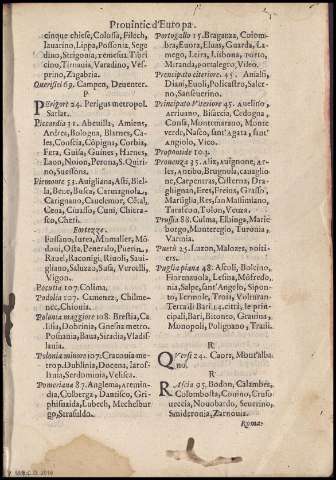 Prouintie d'Europa.
cinque chiese, Colossa, Filoch,
Iauarino, Lippa, Possonia, Sege
dino, Strigonia, Temesua, Tibi-
cino, Tirnauia, Varadino, Ves-
primo, Zagabria.
Querissel 69. Campen, Deuenter.
P
PErigort 24. Perigus metropol.
Sarlat.
Piccardia 31. Abeuilla, Amiens,
Ardres, Bologna, Blarnes, Ca-
les, Corbia,
Fera, Guisa, Guines, Harnes,
Laon, Noion, Perona, S. Quiri-
no, Suessons.
Piemonte 53. Auigliana, Asti, Biel-
la, Bene, Busca, Carmagnola,
Carignano, Caudemor, Cocal,
Ceua, Ciuasso, Cuni, Chiera-
sco, Cheri.
Fortezze.
Fossano, Iurea, Momalier, Mō
daui, Osta, Penerolo, Puerin,
Rauel, Raconigi, Riuoli, Saui-
gliano, Saluzzo, Susa, Vercelli,
Vigon.
Pocutia 107. Colima.
Podolia 107. Camenez, Chilme-
nec, Chionia.
Polonia maggiore 108. Brestia, Ca
lissia, Dobrinia, Gnesna metro.
Posnania, Raua, Siradia, Vladis-
lauia.
Polonia minore 107. Cracouia me-
trop. Dublinia, Docena, Iaros-
lauia, Serdominia, Velisca.
Pomeriana 87. Anglema, Aremin-
dia, Colberga, Dantisco, Gri-
phisualda, Lubech, Mechelbur-
go, Strasuldo.
Portogallo 15. Braganza, Coiom-
bra, Euora, Eluas, Guarda, La-
mego, Leira, Lisbona, Porto,
Miranda, Portalegro, Viseo.
Prencipato citeriore. 45. Amalfi,
Diani, Euoli, Policastro, Saler-
no, Sanseuerino.
Principato Vlteriore 45. Auelino,
Arriuano, Bisaccia, Cedogna,
Consa, Montemarano, Monte
verde, Nasco, sant'Agata, sant'
Angiolo, Vico.
Propontide 103.
Prouenza 35. Aiz, Auignone, Ar-
les, Antibo, Brugnola, Cauaglio
ne, Carpentras, Cisterna, Dra-
ghignan, Eres, Freius, Grasso,
Mariglia, Res, san Massimian,
Tarascon, Tolon, Venza.
Prussia 88. Culma, Elbinga, Marie
borgo, Monteregio, Turonia,
Varmia.
Pueti 25. Luzon, Malozes, poiti-
ers.
Puglia piana 48. Ascoli, Bolcino,
Fiarenzuola, Lesina, Mōfredo-
nia, Salpe, sant'Angelo, Sipon-
to, Termole, Troia, Volturara.
Terra di Bari 14. città, le prin-
cipali, Bari, Bitonto, Grauina,
Monopoli, Polignano, Trani.
R
QVersi 24. Caors, Mout'alba
no.
R
RAscia 95. Bodon, Calambes,
Colombosta, Couino, Crusso-
ueccia, Nouobardo, Seuerino,
Smideronia, Zarnouia.
Roma-